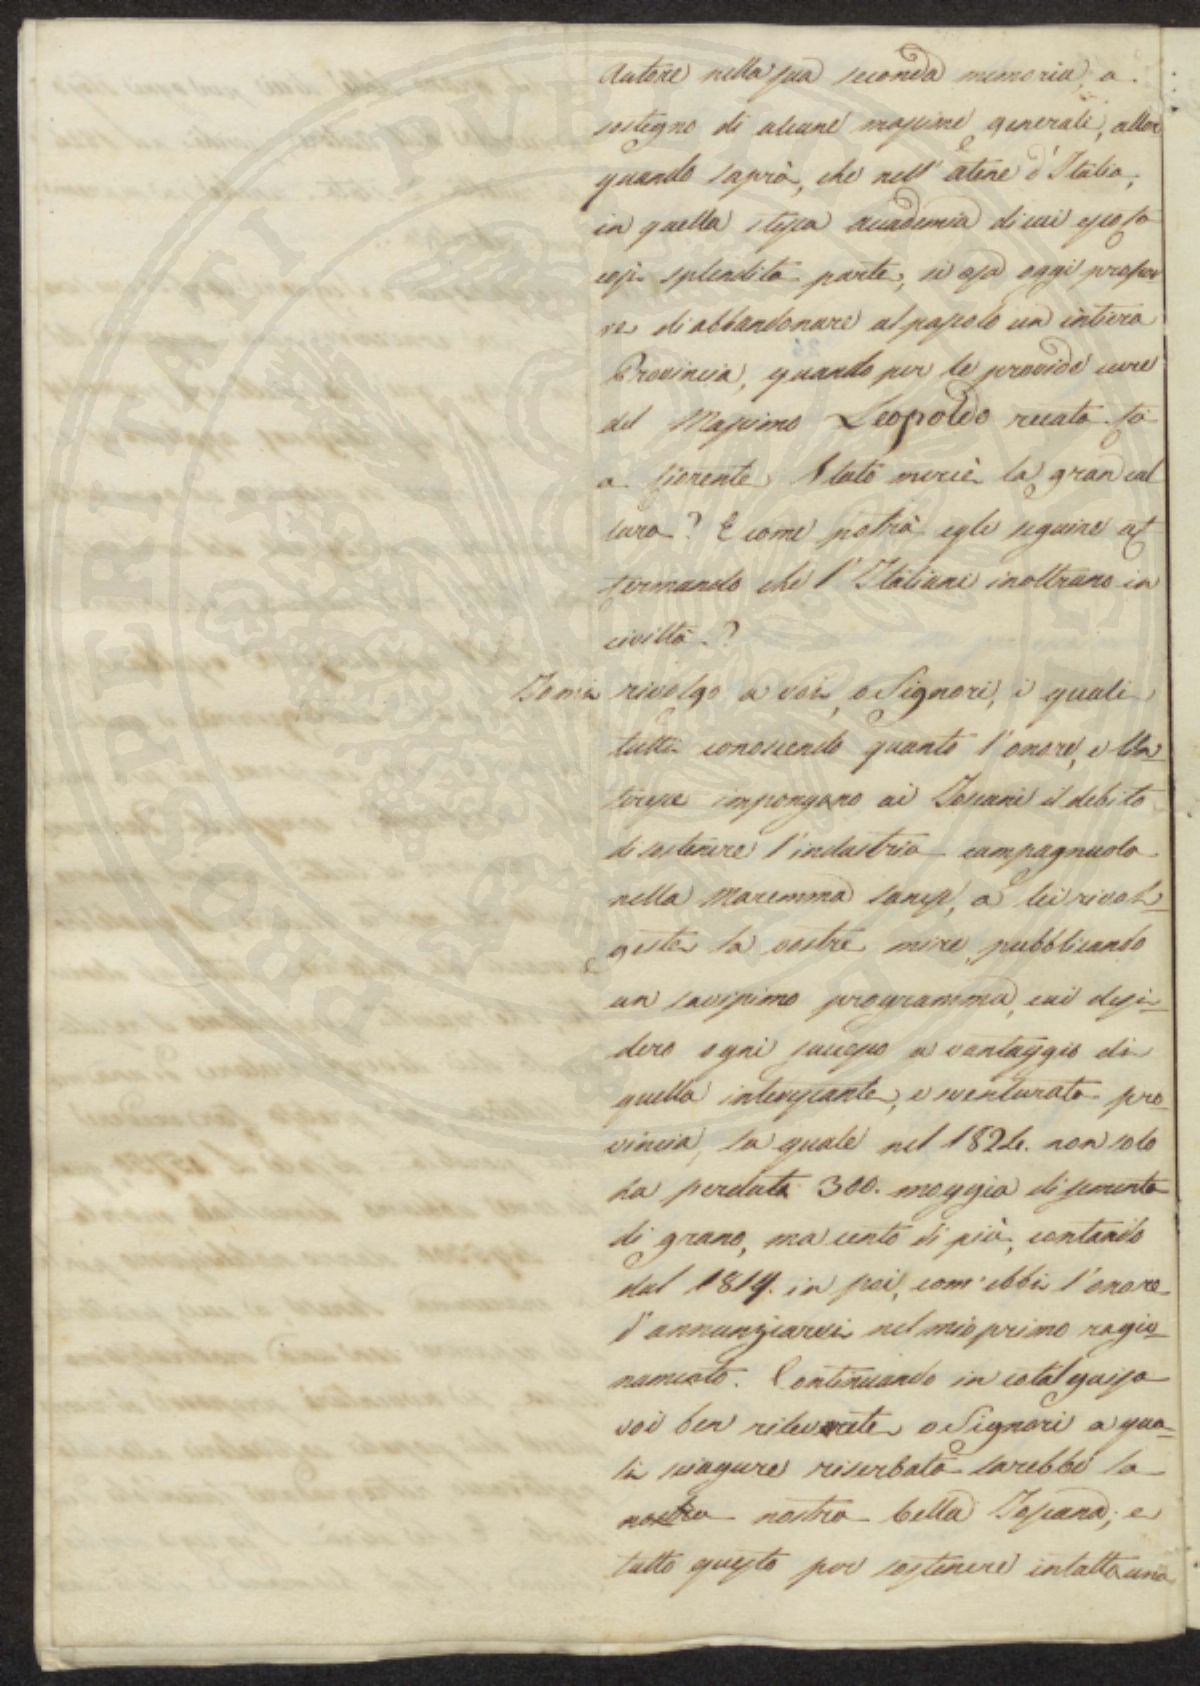 Autore nella sua seconda memoria, a
sostegno di alcune massime generali, allor
quando saprà, che nell' atene d'Italia,
in quella stessa accademia di cui
così splendita parte, si osa oggi propor
re di abbandonare al pascolo un intiera
Provincia, quando per le provide cure
del Massimo Leopoldo recata fù
a fiorente stato mercè la gran cul
tura? E come potrà egli seguire af
fermando che l'Italiani inoltrano in
civiltà?
Io mi rivolgo a voi, o Signori, i quali
tutti conoscendo quanto l'onore, e
impongano ai Toscani il debito
di sostenere l'industria campagnuola
nella Maremma Sanese, a lei rivol-
geste le vostre mire, pubblicando
un savissimo programma, cui desi-
dero ogni successo a vantaggio di
quella interessante, e sventurata pro-
vincia, la quale nel 1824. non solo
ha perduta 300. moggia di sementa
di grano, ma cento di più, contando
dal 1819. in poi, com' ebbi l'onore
d'annunziarvi nel mio primo ragio-
namento. Continuando in cotal guisa
voi ben rileverete, o Signori a qua-
li sciagure riserbata sarebbe la
nostra nostra bella Toscana; e
tutto questo per sostenere intatta una